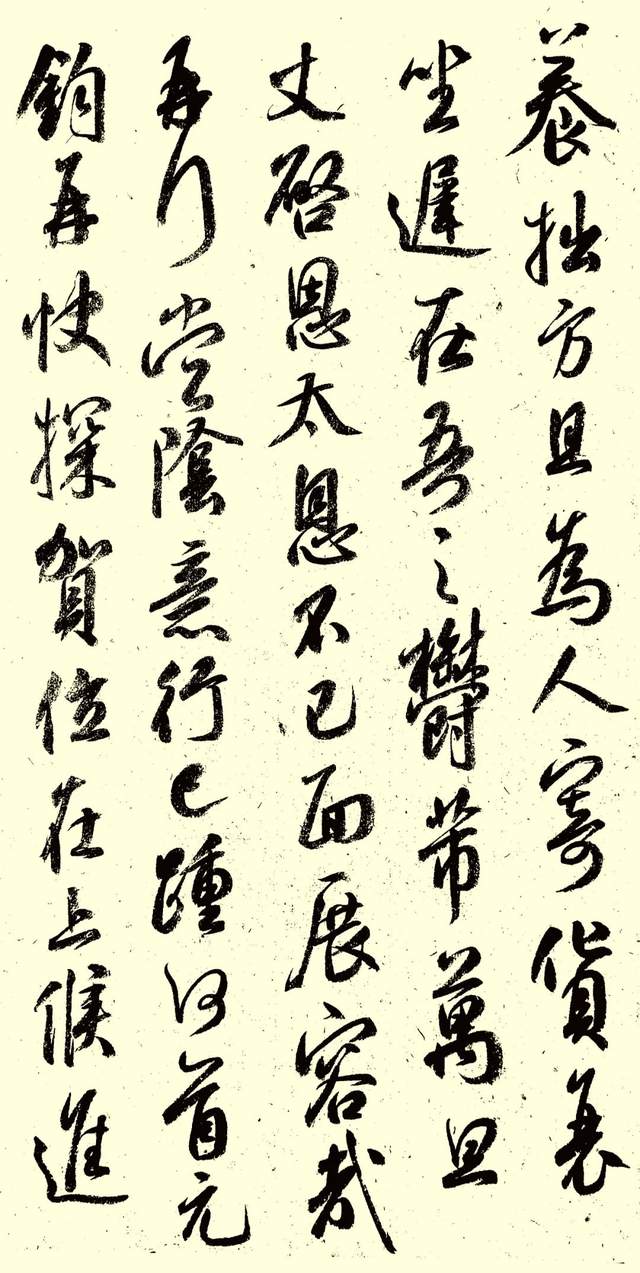 養拙方且為人寄貨衰
坐遲在吾之欝帶萬且
丈啓恩太恩不已面展容哉
再行堂陰意行已踵何首元
鈞再快探賀位在上候進